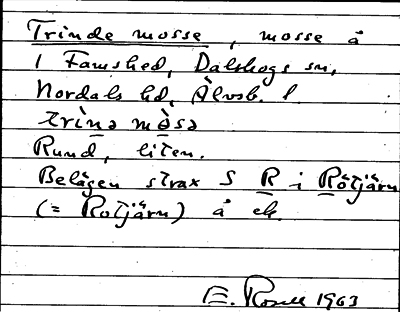 Trinde mosse, mosse å
1 Famshed, Dalskogs sn,
Nordals hd, Älvsb. l.
trìnə mòsə
Rund, liten.
Belägen strax S R i Rötjärn
(= Rotjärn) å ek.
E. Rosell 1963